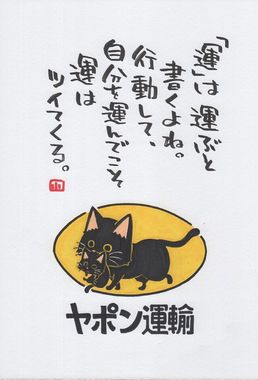 「運」は 運ぶと
書くよね。
行動して、
自分を運んでこそ
運は
ツイてくる。
ヤポン運輸